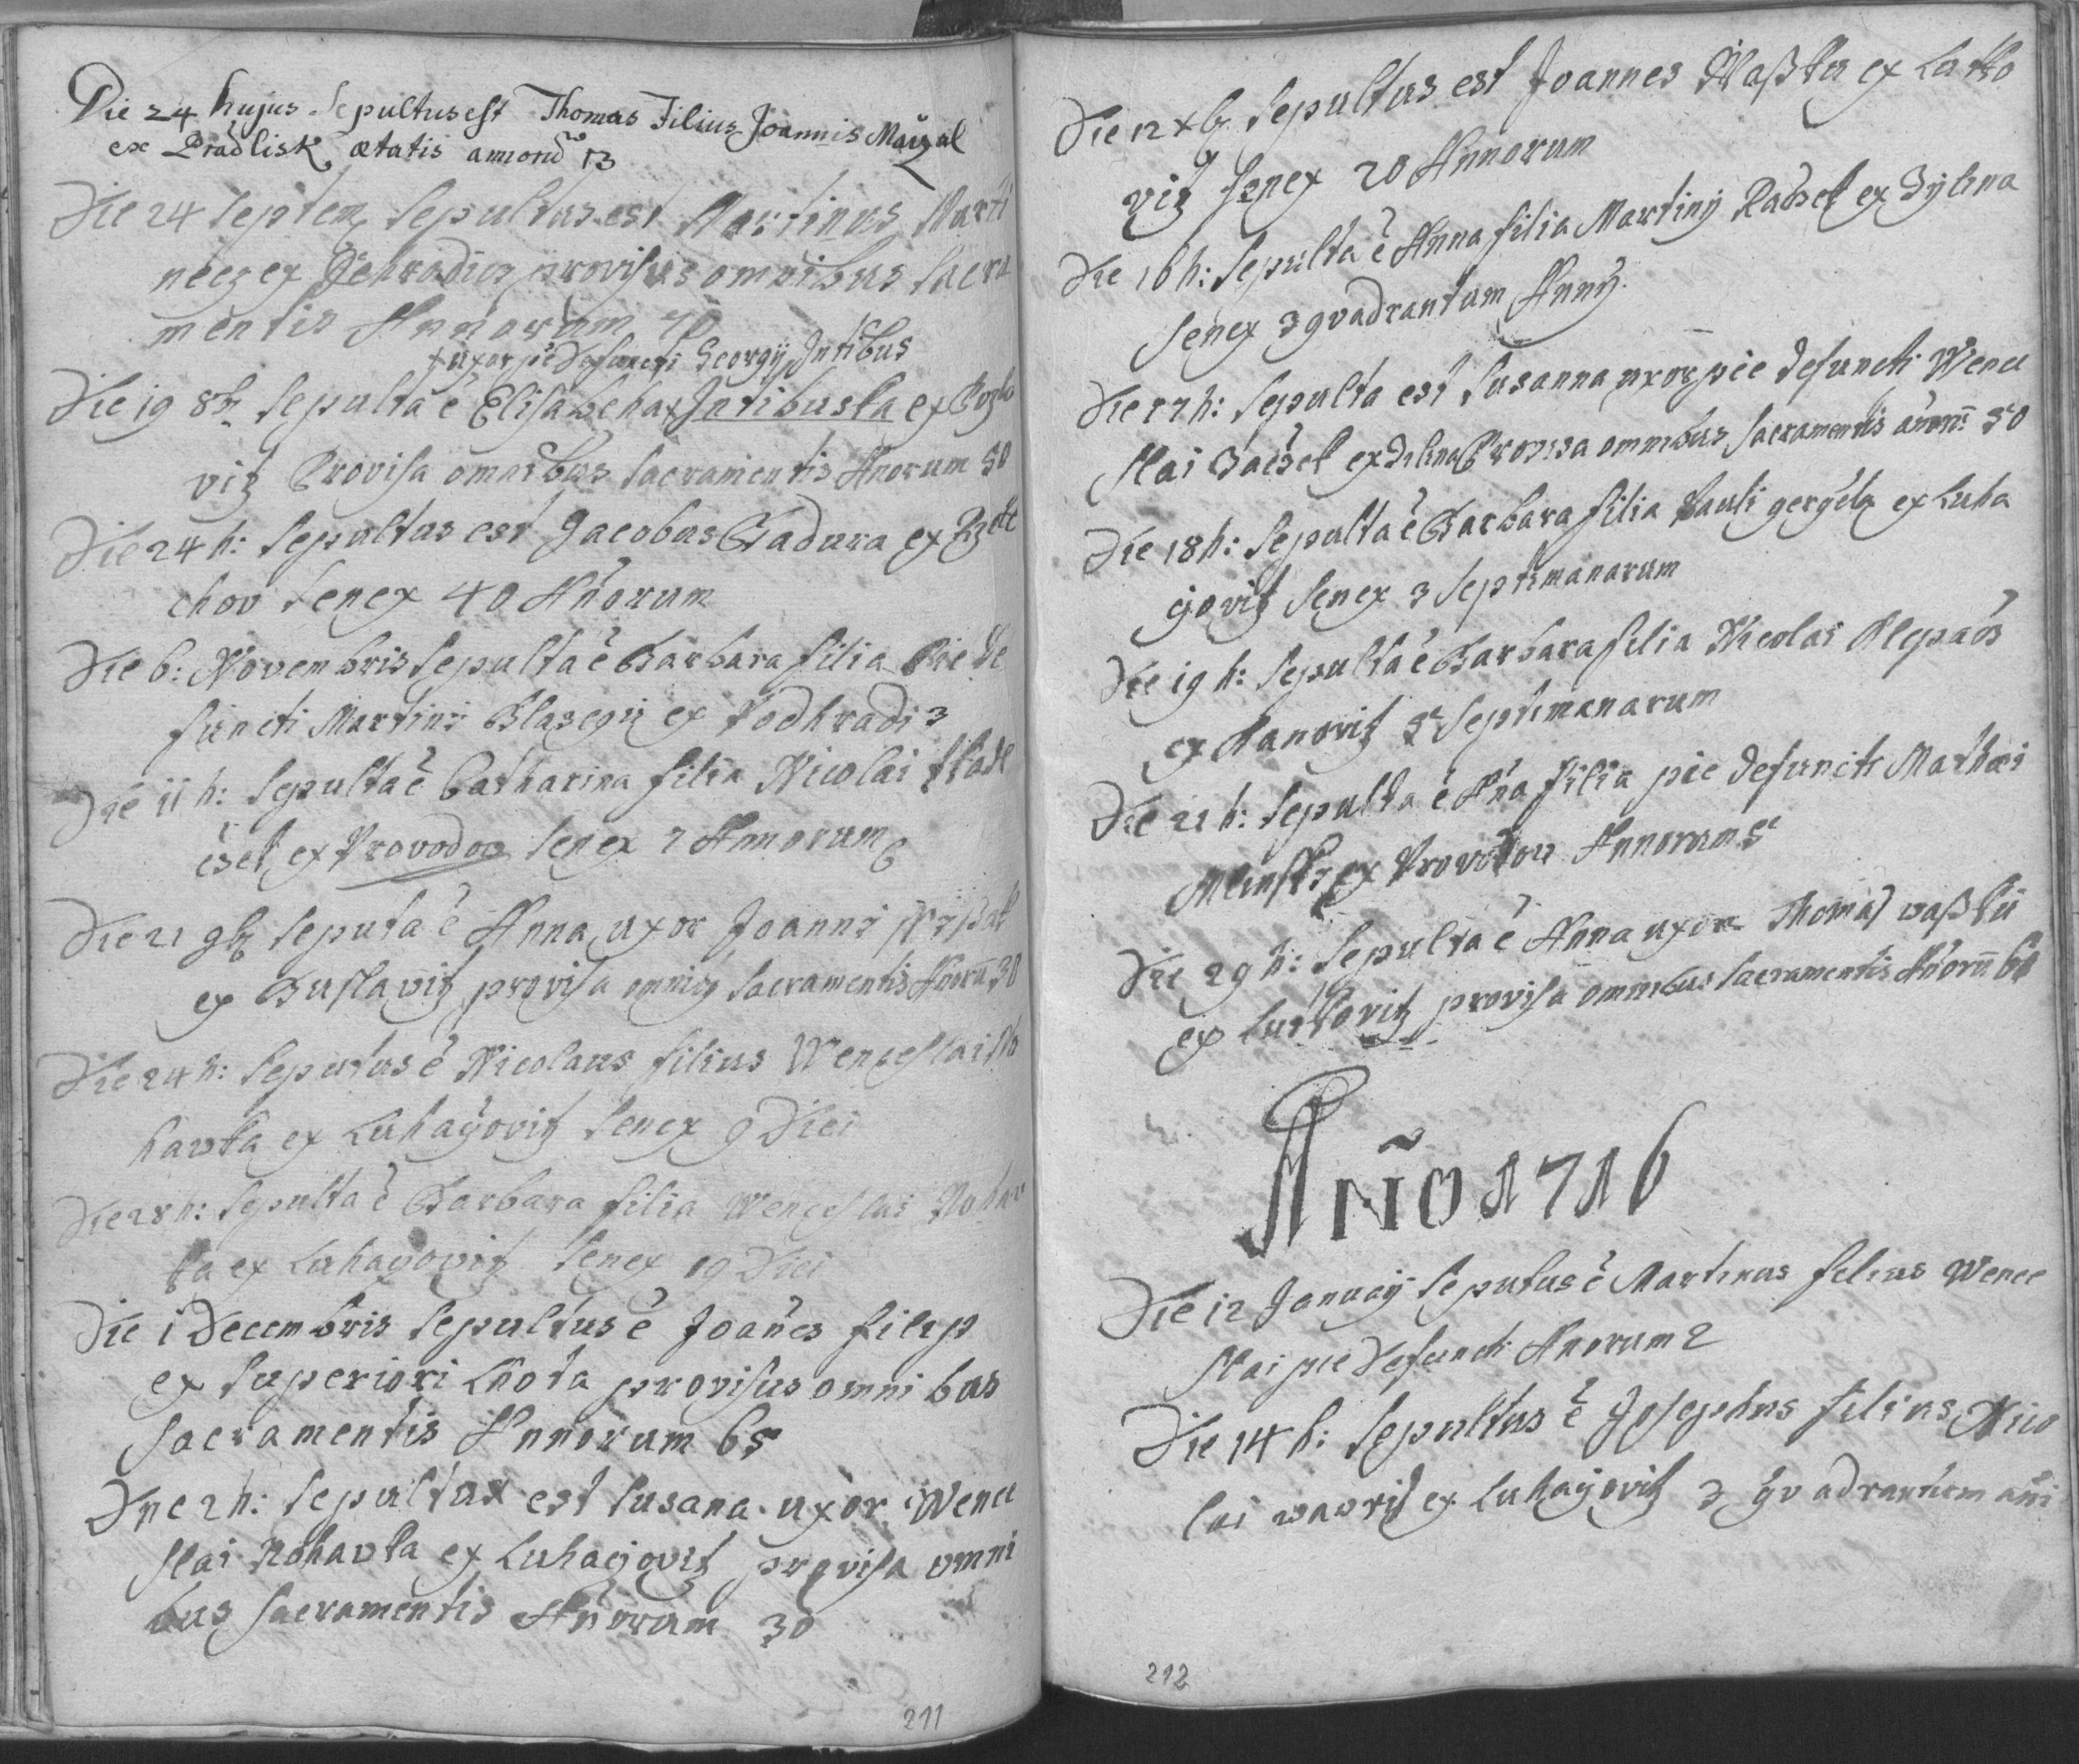 Die 24 hujus Sepultus est Thomas Filius Joannis Mačzal
ex Pradlisk ætatis annorũ 13
Die 24 Septem Sepultus est Martinus Marti
necz ex provisus omnibus Sacra
mentis Annorum 70
+ uxor pie Defuncti Georgij Intibus
Die 19 8b Sepulta ē Elisabeha + Intibuska ex
vitz Provisa omnibus Sacramentis Anorum 50
Die 24 h: Sepultus est Jacobus Badura ex
chov Senex 40 Añorum
Die 6: Novembris Sepulta ē Barbara filia Pie De
functi Martini Blasegii ex Podhradi 3
Die 11 h: Sepulta ē Catharina filia Nicolai
ex Provodov Senex 7 Annorum
Die 21 9b Sepulta ē Anna uxor Joanni
ex Buslavitz provisa omnib Sacramentis Anorũ 30
Die 24 h: Sepultus ē Nicolaus filius Wenceslai No
havka ex Luhayovitz Senex 9 Diei
Die 28 h: Sepulta ē Barbara filia Wenceslai Nohav
ka ex Luhayovitz Senex 19 Diei
Die 1 Decembris Sepultus ē Joañes Filip
ex Superiori Lhota provisus omnibus
Sacramentis Annorum 65
Die 2 h: Sepultux est Susana uxor Wence
slai Nohavka ex Luhayovitz provisa omni
bus Sacramentis Añorum 30
211
Die 12 Xb Sepultus est Joannes Waßku ex Latko
vitz Senex 20 Annorum
Die 16 h: Sepulta ē Anna filia Martiny Radsek ex Zylina
Senex 3 qvadrantum Anny
Die 17 h: Sepulta est Susanna uxor pie defuncti Wence
slai ex Provisa omnibus Sacramentis 50
Die 18 h: Sepulta ē Barbara filia Pauli ex Luha
yovitz Senex 3 Septimanarum
Die 19 h: Sepulta ē Barbara filia Nicolai
ex Kanovitz 5 Septimanarum
Die 21 h: Sepulta ē Aña filia pie defuncti Mathæi
ex Provodov Annorum 5
Die 29 h: Sepulta ē Anna uxor Thomas waßku
ex provisa omnibus Sacramentis Añorũ 60
Añno 1716
Die 12 January Seputus ē Martinus filius Wence
slai pie Defuncti Anorum 2
Die 14 h: Sepultus ē Josephus filius Nico
lai wawris ex Luhayovitz 3 qvadrantum añi
212